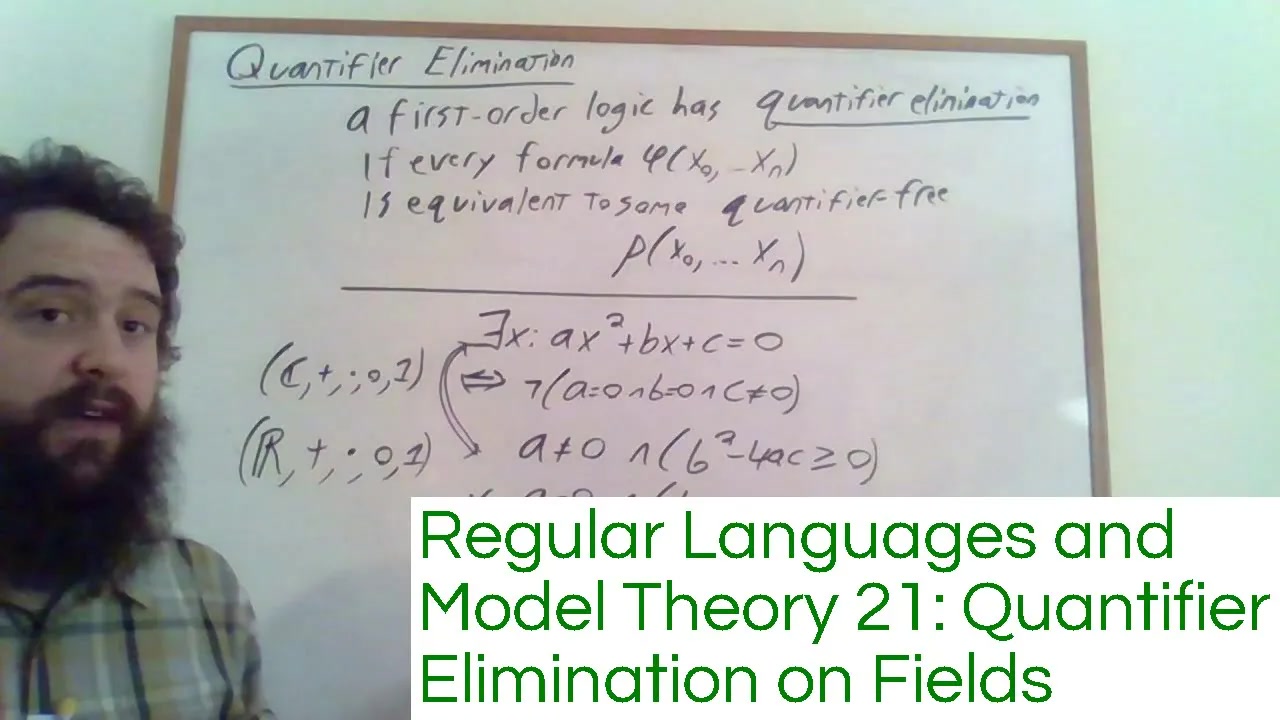 Quantifier Elimination
a first-order logic has quantifier elinination
If every formula φ(x₀, … xₙ)
Is equivalent to some quantifier-free
ρ(x₀, … xₙ)
∃x: ax²+bx+c=0
(ℂ,+,·,0,1) ⇔ ¬(a=0∧b=0∧c≠0)
(ℝ,+,·,0,1) a≠0 ∧(b²-4ac≥0)
Regular Languages and
Model Theory 21: Quantifier
Elimination on Fields